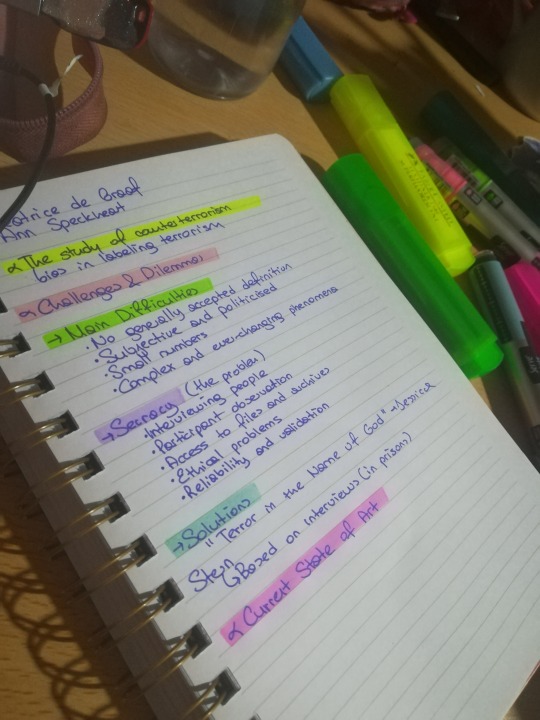 atrice de Graaf
Ann Speckheat
∝ The study of counterterrorism
bias in labeling terrorism
∝ Challenges & Dilemmas
→ Main Difficulties
• No generally accepted definition
• Subjective and politicised
• Small numbers
• Complex and ever-changing phenomena
→ Secracy (the problem)
• Interviewing people
• Participant observation
• Access to files and archives
• Ethical problems
• Reliability and validation
→ Solutions
" Terror in the Name of God" - Jessica
Stern
↳ Based on interviews (in prison)
∝ Current State of Art